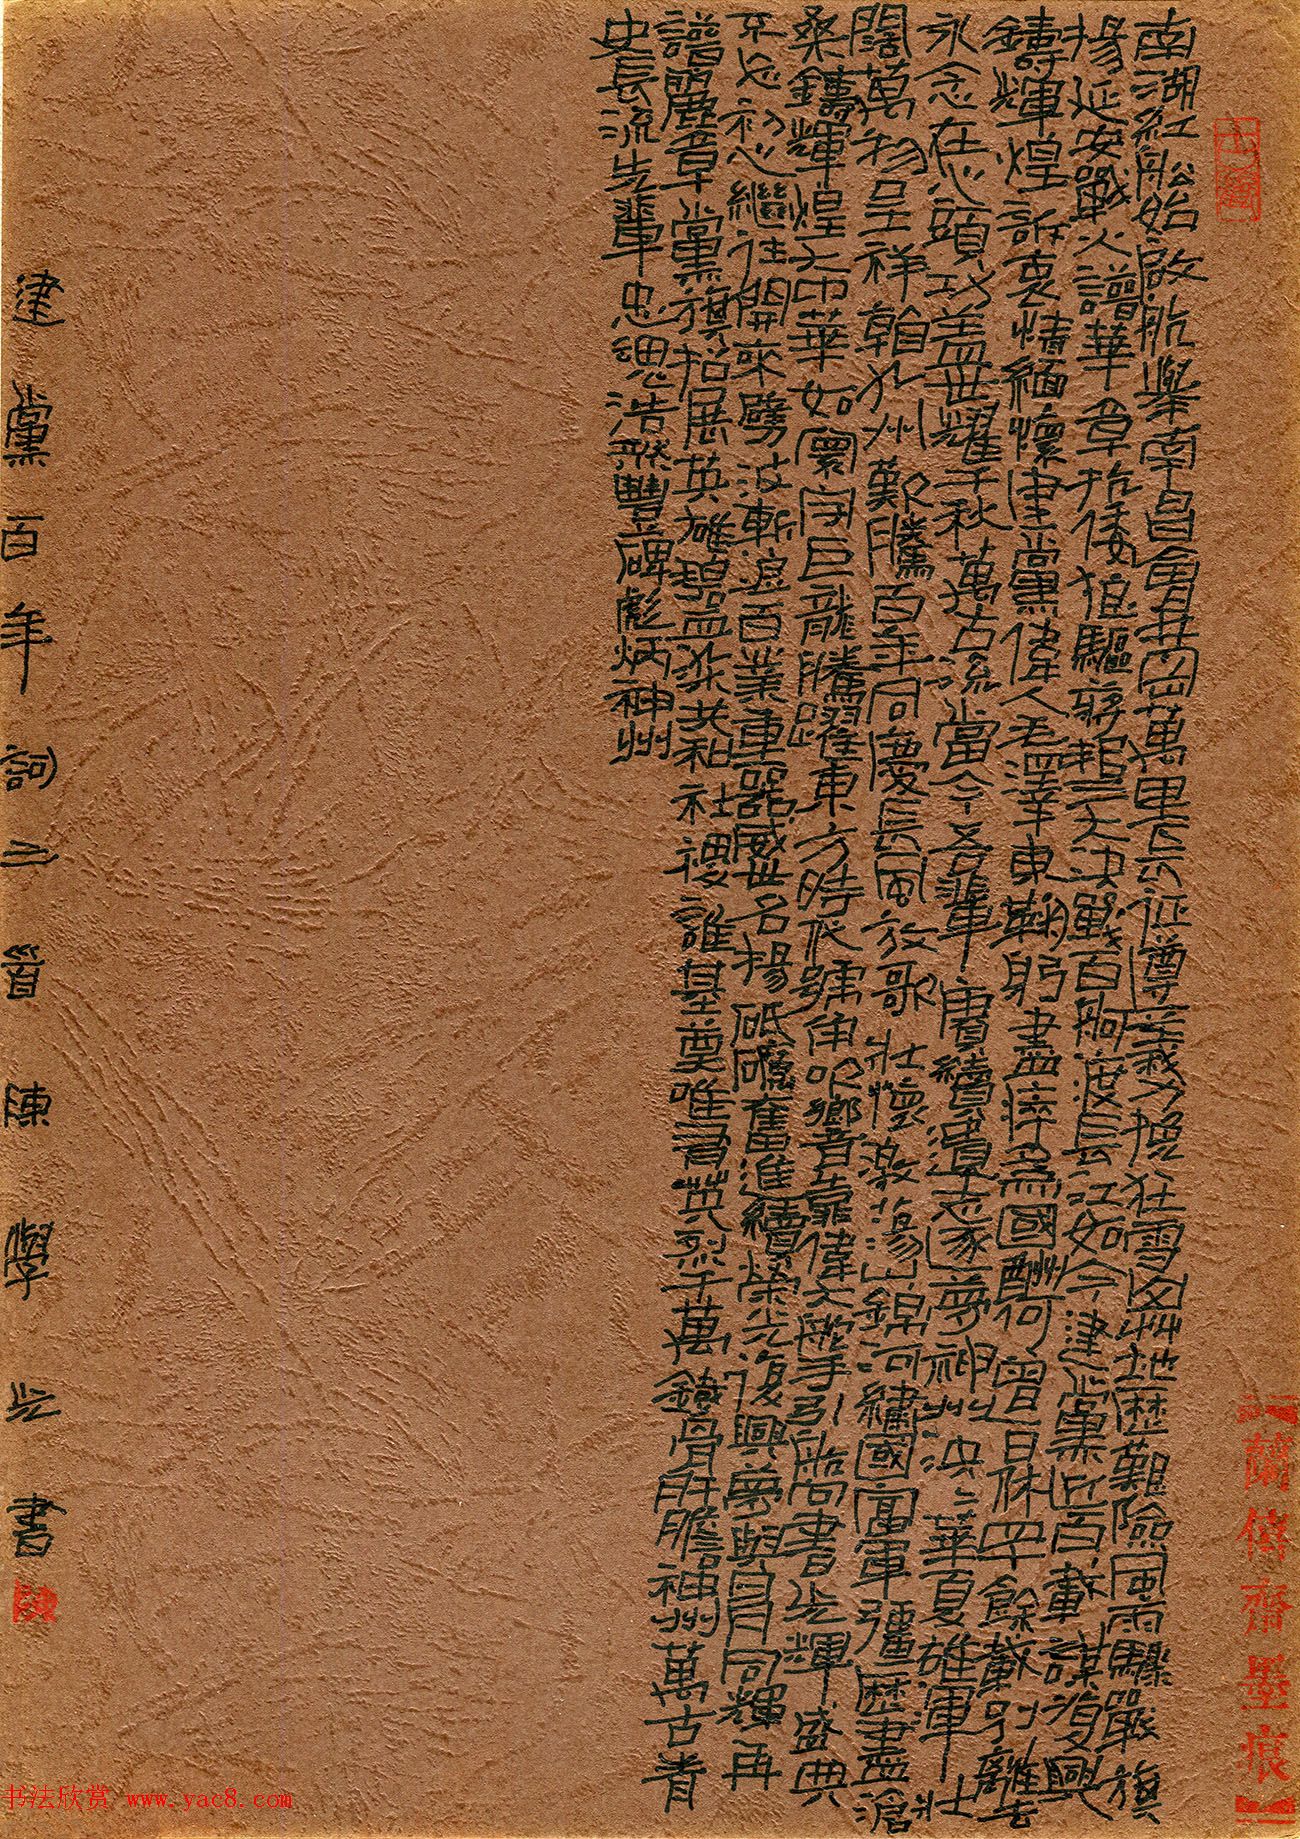 南湖紅船始啟航舉南昌會井岡萬里長征遵義力挽狂雪山草地歷艱險風雨驟嚴旗
揚延安戰火譜華章抗倭狼驅蔣  決戰百舸渡長江如今建黨近百載謀復興
鑄輝煌訴衷情緬懷建黨偉人毛澤東鞠躬盡瘁為國酬何曾一日休四十餘載別離去
永念在心頭功蓋世耀千秋萬古流當今吾輩賡續遺志逐夢神州泱泱華夏雄軍壯
闊萬物呈祥翰九州歡騰百年同慶長風放歌壯懷激蕩山錦河繡國富軍彊歷盡滄
桑鑄輝煌大中華如寰宇巨龍騰躍東方時代號角響靠偉大舵手引航尚書光輝盛典
不忘初心繼往開來劈波斬浪百業重器威世名揚砥礪奮進續榮光復興夢與日月同輝再
譜麗章黨旗招展英雄碧血染共和社稷誰基奠唯有英烈千萬鐵骨肝膽神州萬古青
史長流先輩忠魂浩然豐碑彪炳神州
建黨百年詞三首陳學光書
蘭倩齋墨痕
书法欣赏 www.yac8.com